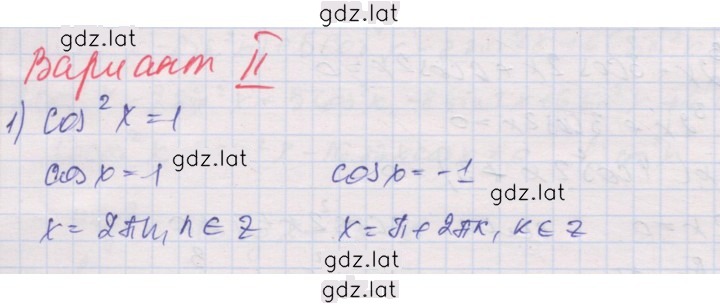 gdz.lat
gdz.lat
Вариант II
1) cos²x=1
cos x=1 gdz.lat cos x=-1
gdz.lat
x=2πn, n∈Z x=π+2πk, k∈Z
gdz.lat
gdz.lat